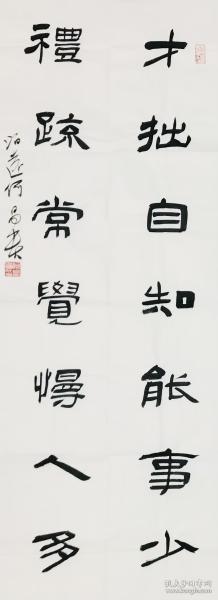 才拙自知能事少
禮疏常覺慢人多